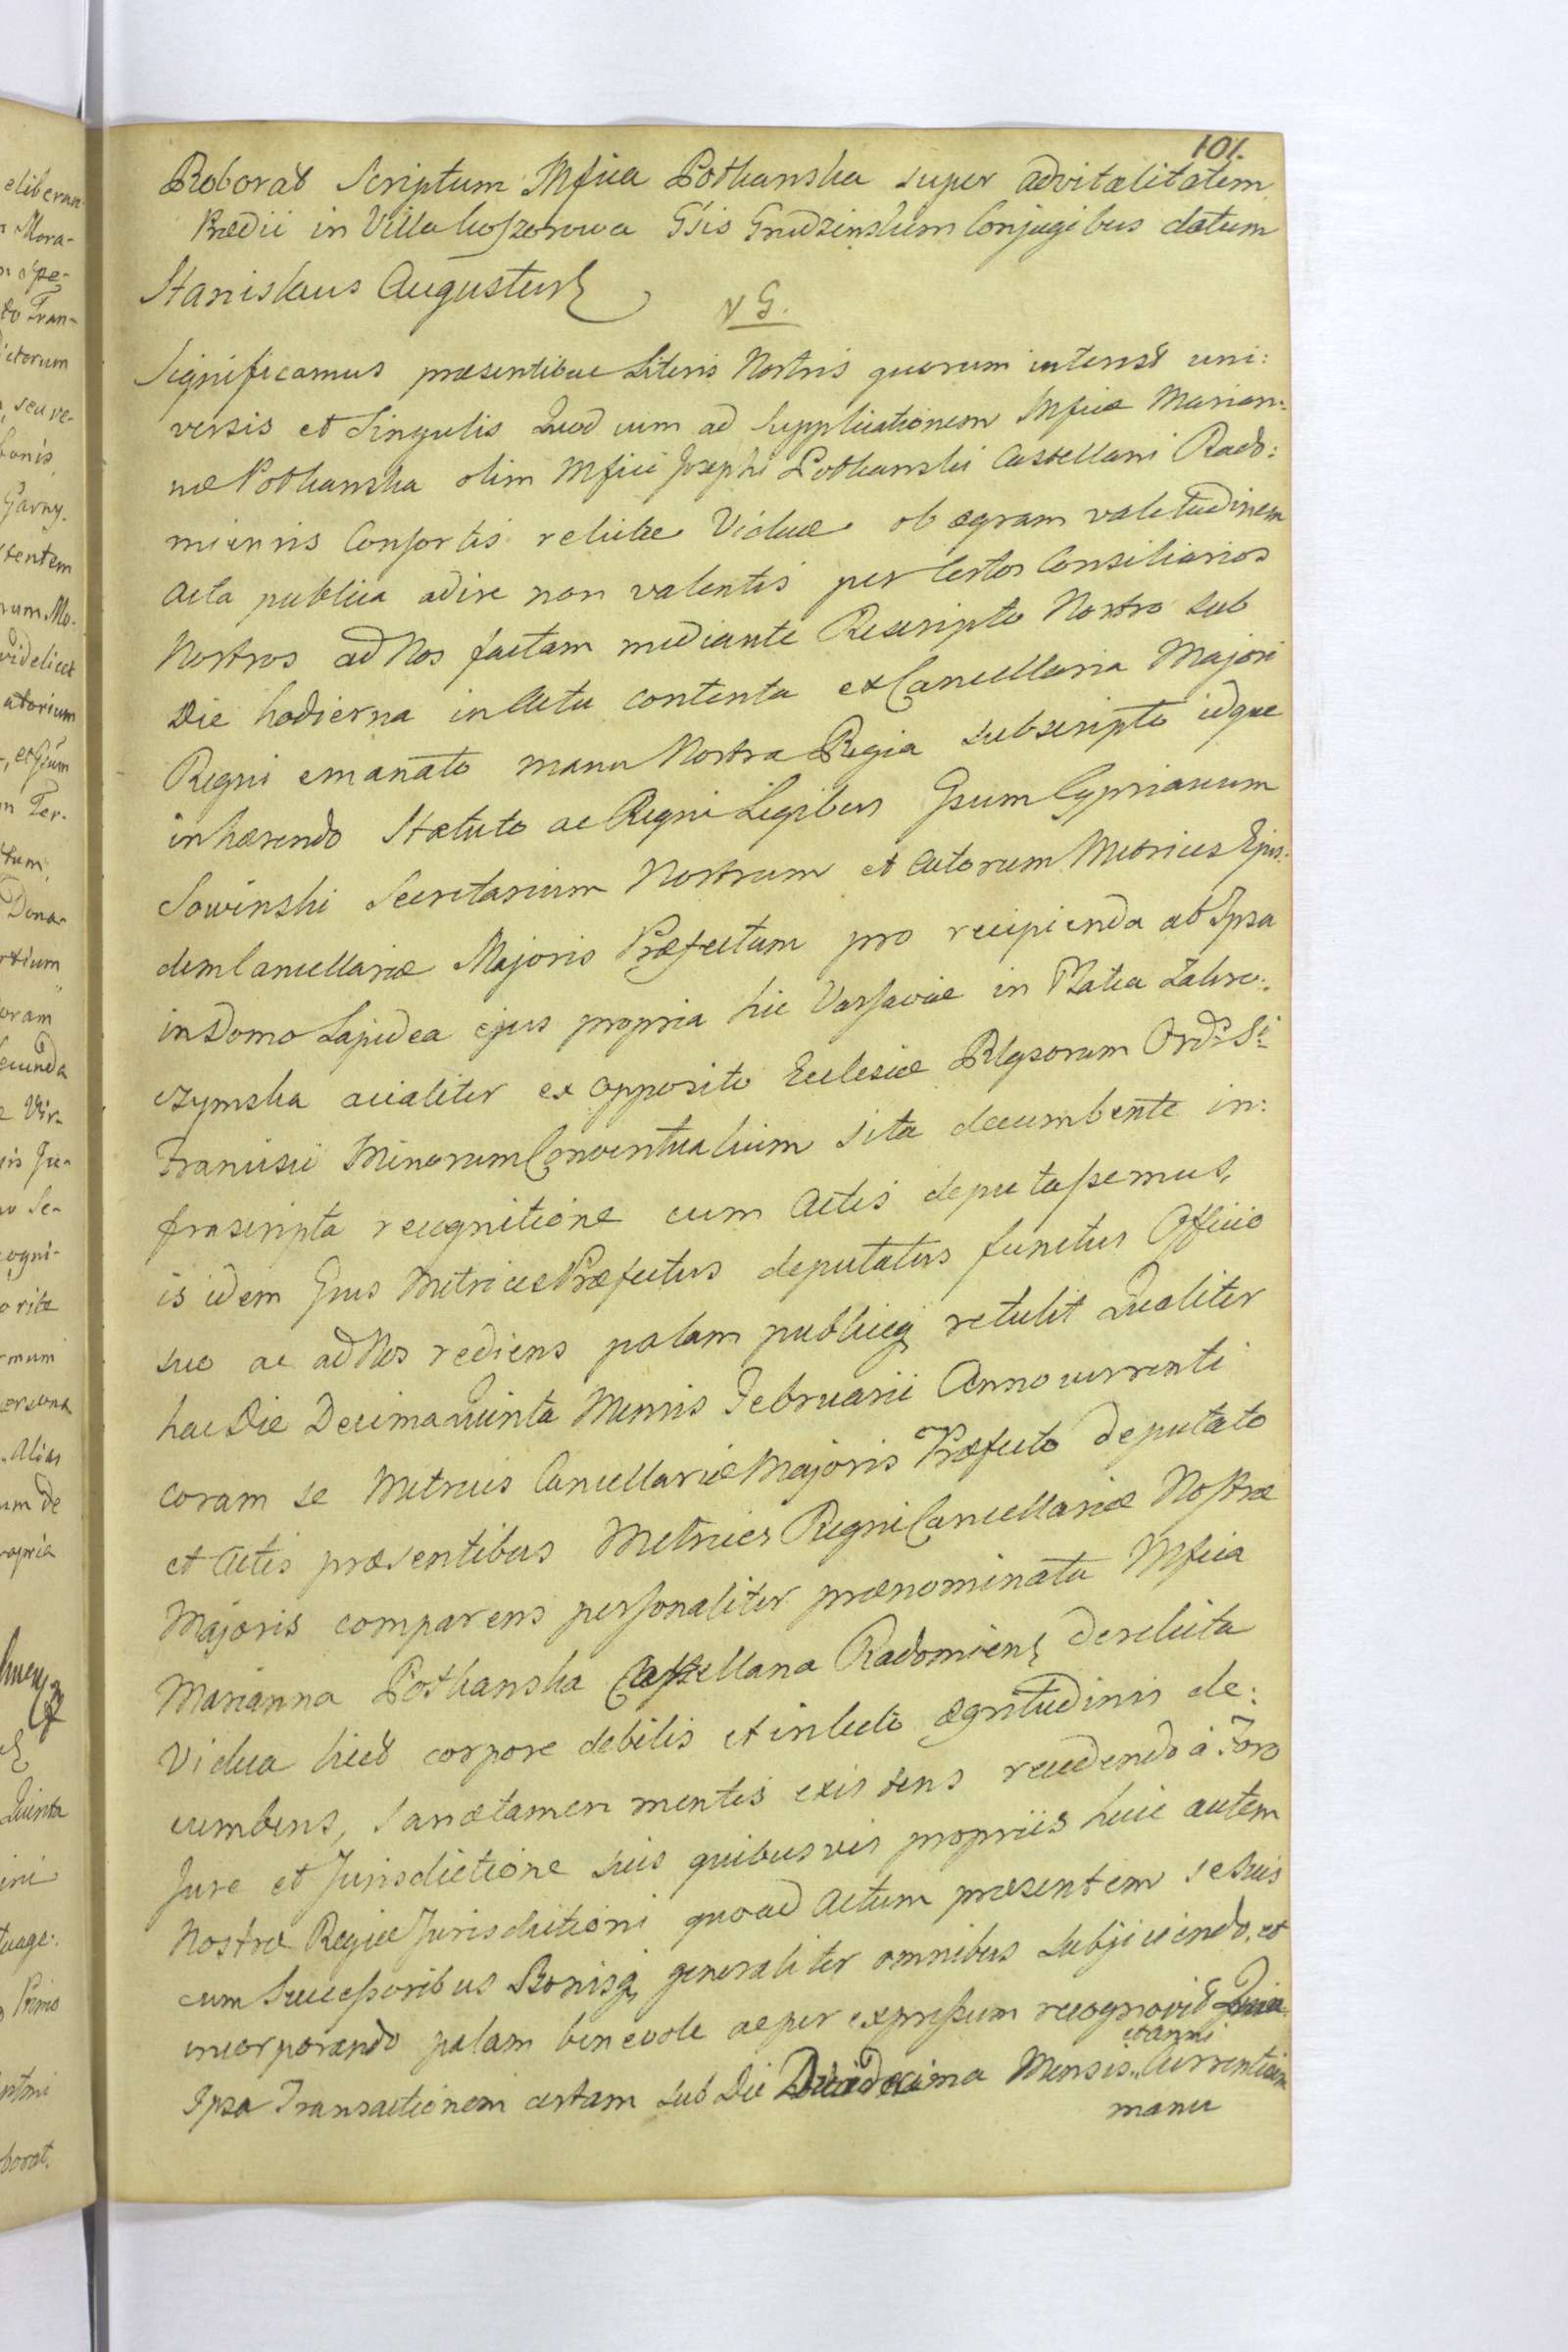 101.
Roborat Scriptum Mfica Potkanska super advitalitatem
Prædii in Villa Koszorowa Gsis Grudzinskim Conjugibus datum
Stanislaus Augustus
Significamus præsentibus Literis Nostris quorum interest uni:
versis et Singulis Quod cum ad Supplicationem Mficæ Marian:
næ Potkanska olim Mfici Josephi Potkanski Castellani Rado:
miensis Consortis relictæ Viduæ ob ægram valetudinem
Acta publica adire non valentis per Certos Consiliarios
Nostros ad Nos factam mediante Rescripto Nostro sub
Die hodierna in Actu contenta ex Cancellaria Majori
Regni emanato manu Nostra Regia subscripto idque
inhærendo Statuto ac Regni Legibus Gsum Cyprianum
Sowinski Secretarium Nostrum et Actorum Metrices Ejus:
dem Cancellariæ Majoris Præfectum pro recipienda ab Ipsa
in Domo Lapidea ejus propria hic Varsaviæ in Platea Zakro:
czymska acialiter ex opposito Ecclesiæ Rlgsorum Ords. Si.
Francisci Minorum Conventualium sita decumbente in:
frascripta recognitione cum Actis deputassemus,
is idem Gsus Metrices Præfectus deputatus functus Officio
suo ac ad Nos rediens palam publicq retulit Qualiter
hac Die Decima Quinta Mensis Februarii Anno currenti
coram se Metrices Cancellariæ Majoris Præfecto deputato
et Actis præsentibus Metrices Regni Cancellariæ Nostræ
Majoris comparens personaliter prænominata Mfica
Marianna Potkanska Castellana Radomiens derelicta
Vidua licet corpore debilis et in lecto ægritudinis de:
cumbens, sanæ tamen mentis existens recedendo à Foro
Jure et Jurisdictione suis quibusvis propriis huic autem
Nostræ Regiæ Jurisdictioni quoad Actum præsentem se suis
cum Successoribus Bonisq generaliter omnibus subjiciendo et
incorporando palam benevole ac per expressum recognovit Quia
et anni
Ipsa Transactionem certam sub Die Duodecima Mensis Currentium
manu